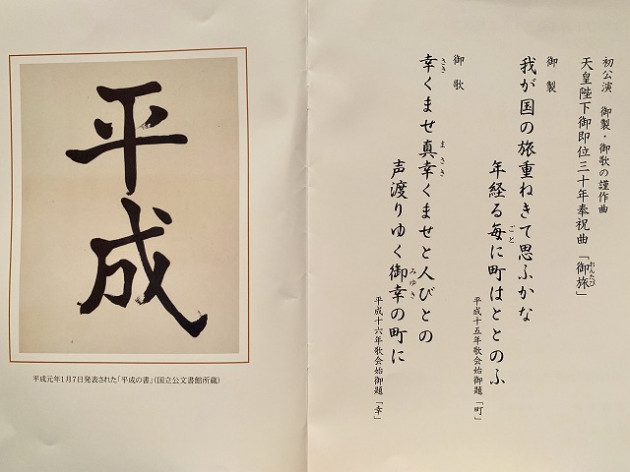 初公演 御製・御歌の謹作曲
天皇陛下御即位三十年奉祝曲「御旅」
おんたび
御製
我が国の旅重ねきて思ふかな
年経る毎に町はととのふ
ごと
平成十五年歌会始御題「町」
御歌
幸くませ真幸くませと人びとの
さき
まさき
声渡りゆく御幸の町に
みゆき
平成十六年歌会始御題「幸」
平成
平成元年1月7日発表された「平成の書」(国立公文書館所蔵)